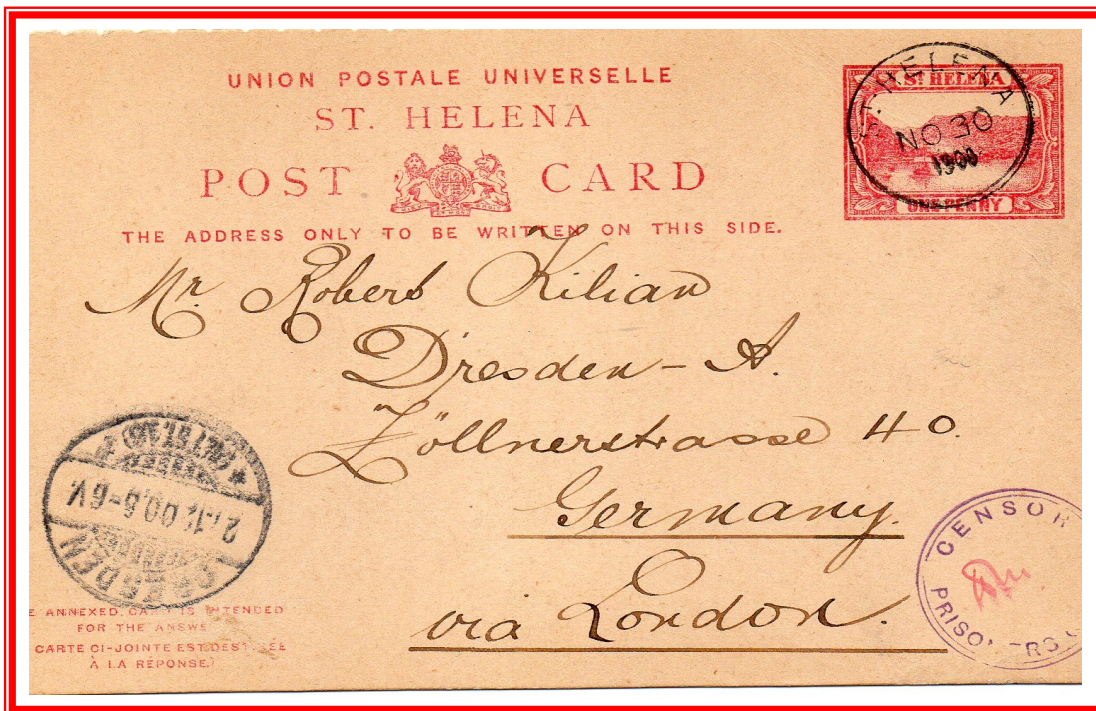 UNION POSTALE UNIVERSELLE
ST. HELENA
POST CARD
THE ADDRESS ONLY TO BE WRITTEN ON THIS SIDE.
ST. HELENA
ONE PENNY
ST. HELENA
NO 30
1900
Mr. Robert Kilian
Dresden - A.
Zöllnerstrasse 40.
Germany.
via London.
DRESDEN
00.5-6V.
CENSOR
PRISONERS
E ANNEXED CARD IS INTENDED
FOR THE ANSWE
CARTE CI-JOINTE EST DESTINÉE
À LA RÉPONSE)